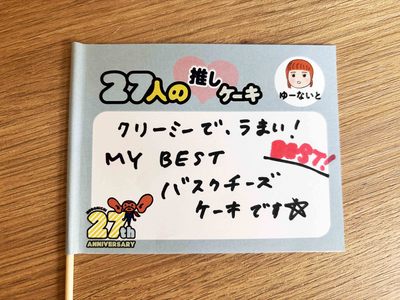 27人の推しケーキ
ゆーないと
クリーミーで、うまい!
MY BEST
BEST!
バスクチーズ
ケーキです☆
27th
ANNIVERSARY